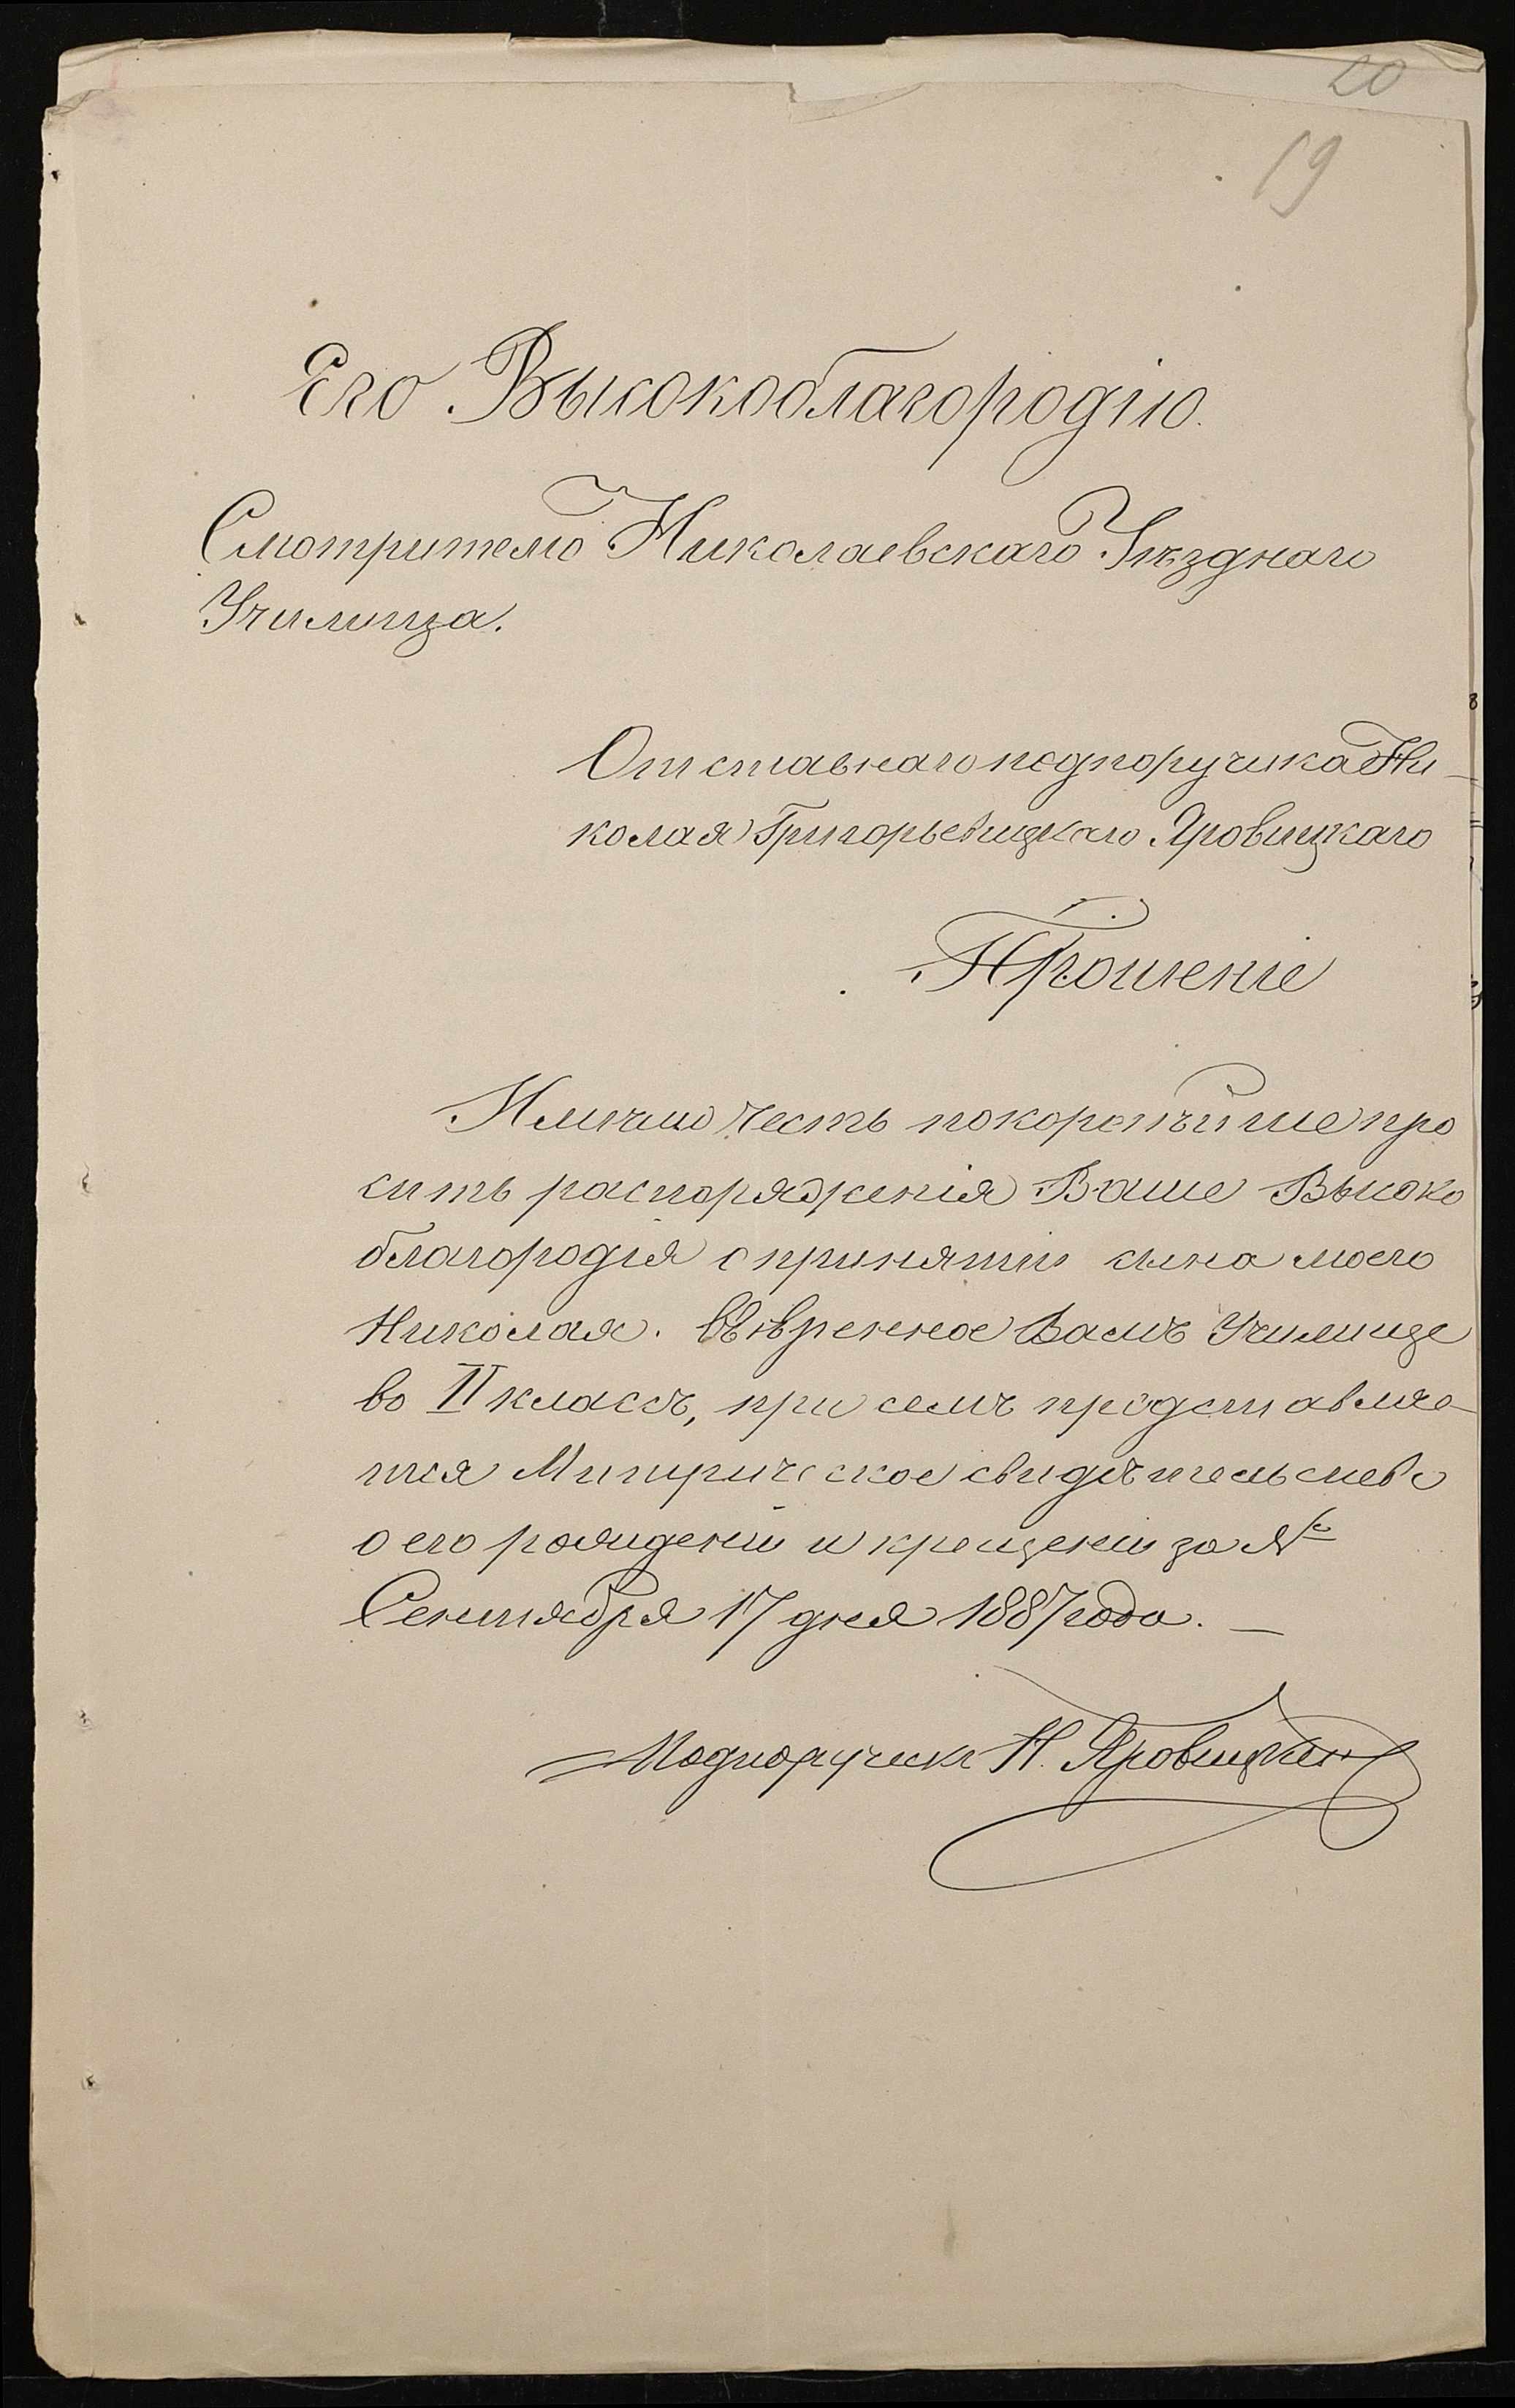 20
19
Его Высокоблагородію.
Смотрителю Николаевскаго Уѣзднаго
Училища.
Отставнаго подпоручика Ни-
колая Яровицкаго
Прошеніе
Имѣю честь покорнѣйше про
сить распоряженія Ваше Высоко
благородія о принятіи сына моего
Николая. ввѣренное Вамъ Училище
во II классъ, при семъ представляе-
тся Митрическое свидѣтельство
о его рожденіи и крещеніи за №
Сентября 17 дня 1887 года. —
Подпоручикъ Н. Яровицкій